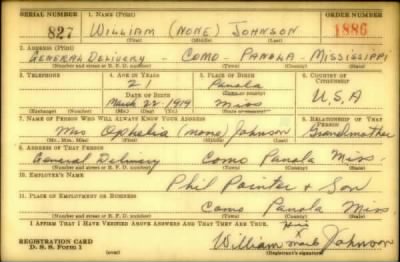 SERIAL NUMBER 1. NAME (Print) ORDER NUMBER
827 WILLIAM (NONE) JOHNSON 1886
(First) (Middle) (Last)
2. ADDRESS (Print)
GENERAL DELIVERY - COMO - PANOLA MISSISSIPPI
(Number and street or R. F. D. number) (Town) (County) (State)
3. TELEPHONE 4. AGE IN YEARS 5. PLACE OF BIRTH 6. COUNTRY OF CITIZENSHIP
21 Panola
DATE OF BIRTH (Town or county)
March 22-1919 Miss U.S.A
(Exchange) (Number) (Mo.) (Day) (Yr.) (State or country)
7. NAME OF PERSON WHO WILL ALWAYS KNOW YOUR ADDRESS 8. RELATIONSHIP OF THAT PERSON
Mrs Ophelia (none) Johnson Grandmother
(Mr., Mrs., Miss) (First) (Middle) (Last)
9. ADDRESS OF THAT PERSON
General Delivery Como Panola Miss.
(Number and street or R. F. D. number) (Town) (County) (State)
10. EMPLOYER'S NAME
Phil Pointer & Son
11. PLACE OF EMPLOYMENT OR BUSINESS
Como Panola Miss.
(Number and street or R. F. D. number) (Town) (County) (State)
I AFFIRM THAT I HAVE VERIFIED ABOVE ANSWERS AND THAT THEY ARE TRUE.
His
X
REGISTRATION CARD William mark Johnson
D. S. S. Form 1 (over) (Registrant's signature)